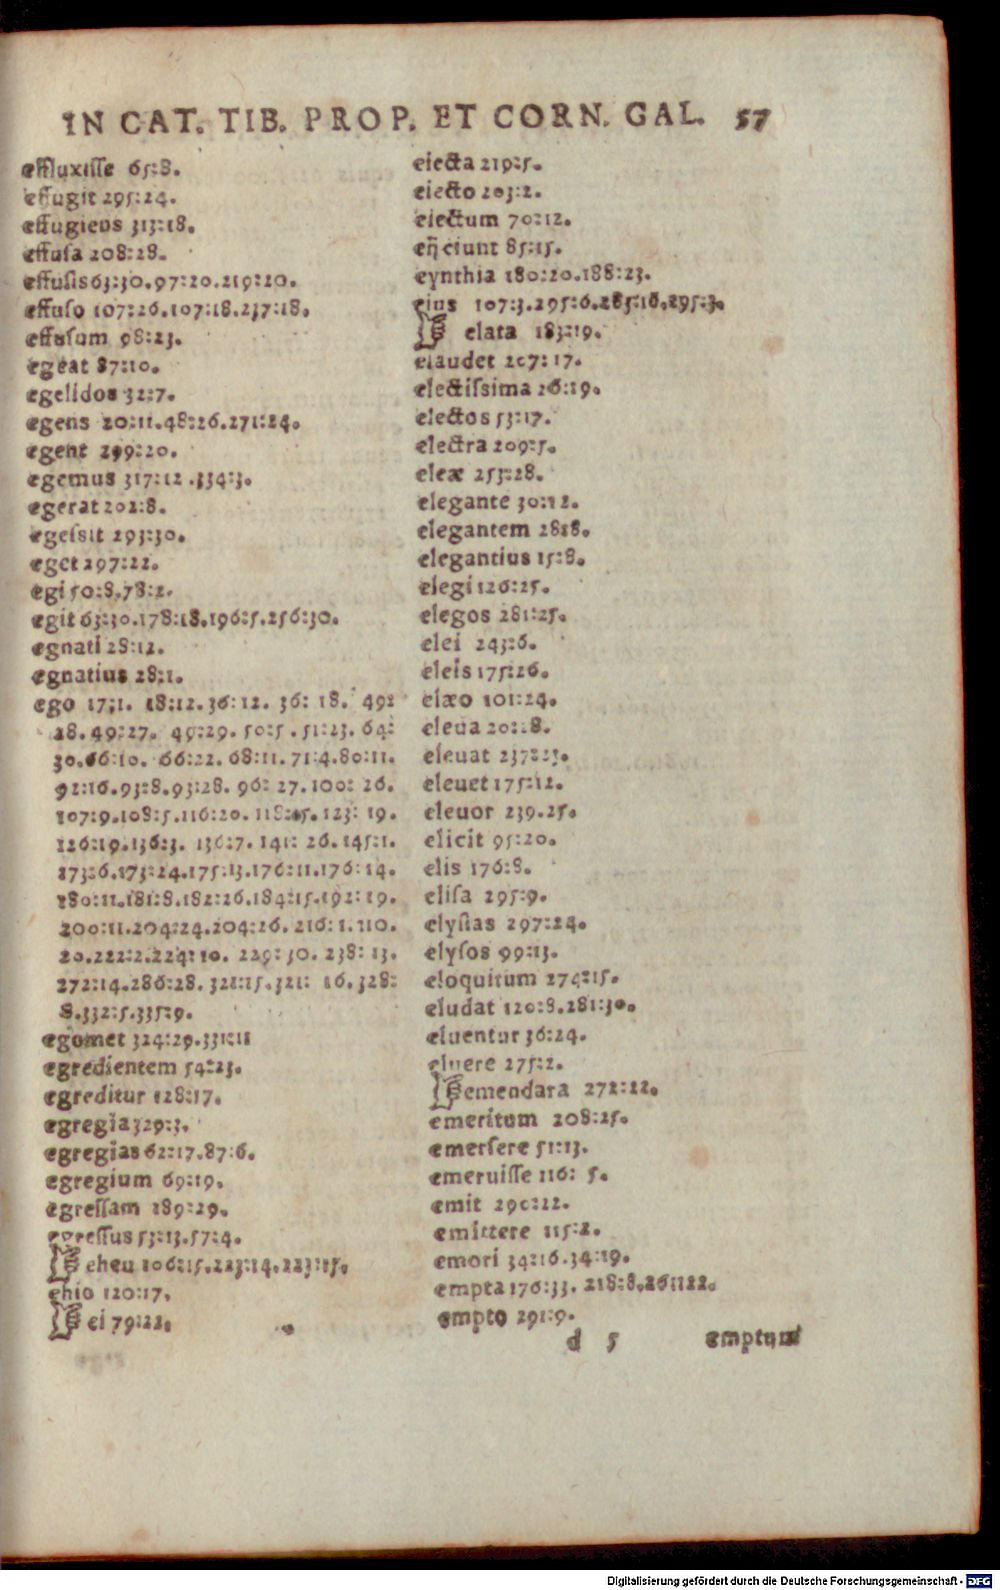 IN CAT. TIB. PROP. ET CORN. GAL. 57
effluxisſe 65:8.
effugit 295:24.
effugiens 313:18.
effuſa 208:28.
effuſis 63:30.97:20.219:20.
effuſo 107:26.107:18.237:18.
effuſum 98:23.
egeat 87:10.
egelidos 32:7.
egens 20:11.48:26.271:24.
egent 299:20.
egemus 317:12.334:3.
egerat 202:8.
egeſsit 293:30.
eget 297:22.
egi 50:8.78:2.
egit 63:30.178:18.196:5.256:30.
egnati 28:12.
egnatius 28:1.
ego 17:1. 18:12.36:12. 36: 18. 49:
28. 49:27. 49:29. 50:5. 51:23. 64:
30.66:10. 66:22. 68:11. 71:4.80:11.
92:16.93:8.93:28. 96: 27. 100: 26.
107:9.108:5.116:20. 118:15. 123: 19.
126:19.136:3. 136:7. 141: 26. 145:1.
173:6.173:24.175:13.176:11.176:14.
180:11.181:8.182:26.184:15.192:19.
200:11.204:24.204:26. 216: 1. 210.
20.222:2.224:10. 229:30. 238: 13.
272:14.286:28. 321:15.321: 16. 328:
8.332:5.335:9.
egomet 324:29.331:11
egredientem 54:23.
egreditur 128:17.
egregia 329:3.
egregias 62:17.87:6.
egregium 69:19.
egreſſam 289:29.
egreſſus 53:13.57:4.
eheu 106:15.223:14.223:15.
ehio 120:17.
ei 79:22.
eiecta 219:5.
eiecto 203:2.
eiectum 70:12.
eijciunt 85:15.
eynthia 180:20.188:23.
eius 107:3.295:6.285:16.295:3.
elata 183:19.
elaudet 207:17.
electiſsima 26:19.
electos 53:17.
electra 209:5.
eleæ 253:28.
elegante 30:12.
elegantem 28:8.
elegantius 15:8.
elegi 126:25.
elegos 281:25.
elei 243:6.
eleis 175:26.
elæo 101:24.
eleua 20:18.
eleuat 237:23.
eleuet 175:12.
eleuor 239.25.
elicit 95:20.
elis 176:8.
eliſa 295:9.
elyſias 297:24.
elyſos 99:13.
eloquitum 274:15.
eludat 120:8.281:30.
eluentur 36:24.
eluere 275:2.
emendara 272:22.
emeritum 208:25.
emerſere 51:13.
emeruiſſe 116: 5.
emit 290:22.
emittere 115:2.
emori 34:16.34:19.
empta 176:33. 218:8.261:22.
empto 291:9.
d 5 emptum